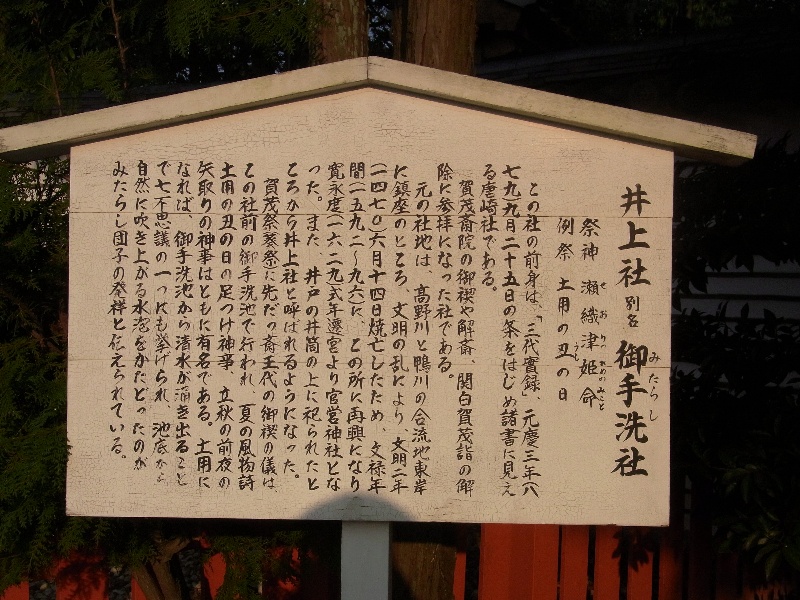 井上社 別名 御手洗社
みたらし
祭神 瀬織津姫命
せおりつひめのみこと
例祭 土用の丑の日
うし
この社の前身は、「三代實録」、元慶三年(八
七九)九月二十五日の条をはじめ諸書に見え
る唐崎社である。
賀茂斎院の御禊や解斎、関白賀茂詣の解
除に参拝になった社である。
元の社地は、高野川と鴨川の合流地東岸
に鎮座のところ、文明の乱により、文明二年
(一四七〇)六月十四日焼亡したため、文禄年
間(一五九二～九六)に、この所に再興になり
寛永度(一六二九)式年遷宮より官営神社とな
った。また、井戸の井筒の上に祀られたと
ころから井上社と呼ばれるようになった。
賀茂祭(葵祭)に先だつ斎王代の御禊の儀は
この社前の御手洗池で行われ、夏の風物詩
土用の丑の日の足つけ神事、立秋の前夜の
矢取りの神事はともに有名である。土用に
なれば、御手洗池から清水が湧き出ること
で七不思議の一つにも挙げられ、池底から
自然に吹き上がる水泡をかたどったのが
みたらし団子の発祥と伝えられている。